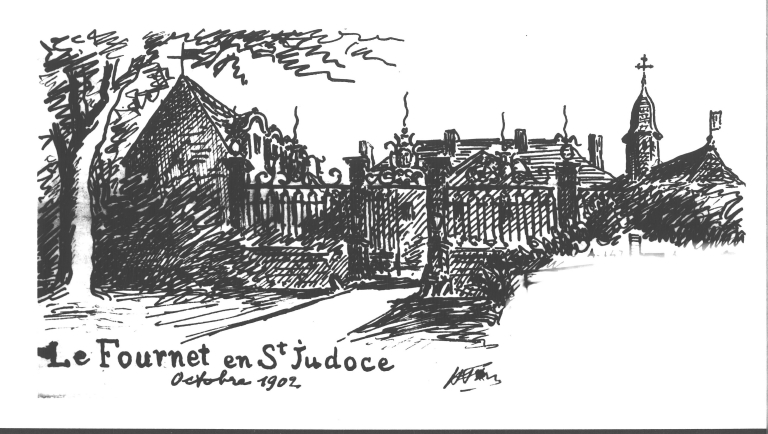 Le Fournet en St Judoce
Octobre 1902